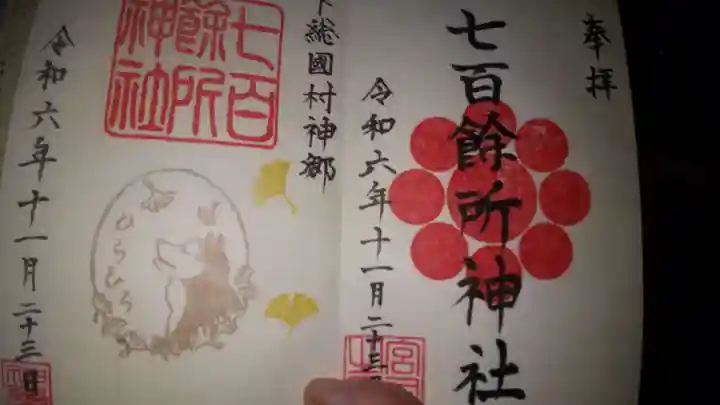 奉拝
七百餘所神社
令和六年十一月二十三日
下総國村神郷
七百
餘所
神社
ひらひら
令和六年十一月二十三日